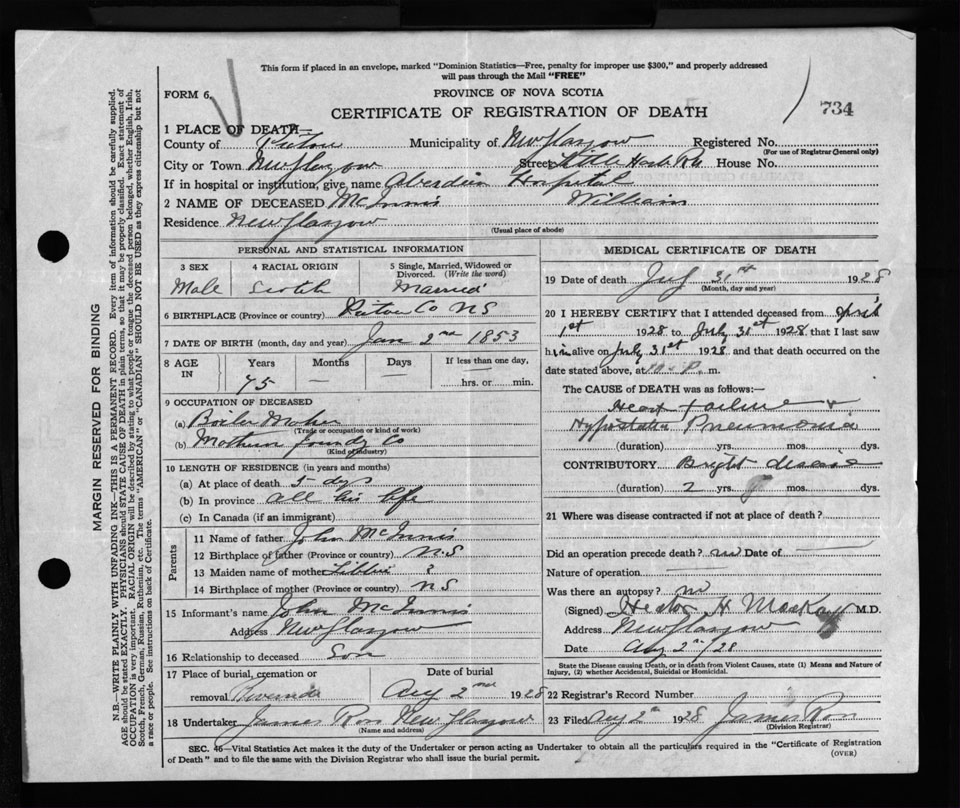 This form if placed in an envelope, marked "Dominion Statistics—Free, penalty for improper use $300," and properly addressed
will pass through the Mail "FREE"
FORM 6.
PROVINCE OF NOVA SCOTIA
CERTIFICATE OF REGISTRATION OF DEATH
734
1 PLACE OF DEATH—
County of Pictou Municipality of New Glasgow Registered No.
(For use of Registrar General only)
City or Town New Glasgow Street Little Harb Rd House No.
If in hospital or institution, give name Aberdeen Hospital
2 NAME OF DECEASED McInnis William
Residence New Glasgow
(Usual place of abode)
PERSONAL AND STATISTICAL INFORMATION
3 SEX 4 RACIAL ORIGIN 5 Single, Married, Widowed or
Divorced. (Write the word)
Male Scotch Married
6 BIRTHPLACE (Province or country) Pictou Co N S
7 DATE OF BIRTH (month, day and year) Jan 2nd 1853
8 AGE IN Years Months Days If less than one day,
75 — hrs. or min.
9 OCCUPATION OF DECEASED
(a) Boiler Maker
(Trade or occupation or kind of work)
(b) Foundry Co
(Kind of industry)
10 LENGTH OF RESIDENCE (in years and months)
(a) At place of death 5 dys
(b) In province all his life
(c) In Canada (if an immigrant)
Parents
11 Name of father John McInnis
12 Birthplace of father (Province or country) N.S
13 Maiden name of mother Libbie ?
14 Birthplace of mother (Province or country) N S
15 Informant's name John McInnis
Address New Glasgow
16 Relationship to deceased Son
17 Place of burial, cremation or Date of burial
removal Riverside Aug 2nd 1928
18 Undertaker James Ross New Glasgow
(Name and address)
MEDICAL CERTIFICATE OF DEATH
19 Date of death July 31st 1928
(Month, day and year)
20 I HEREBY CERTIFY that I attended deceased from April
1st 1928 to July 31st 1928 that I last saw
him alive on July 31st 1928 and that death occurred on the
date stated above, at 10- P. m.
The CAUSE of DEATH was as follows:—
Heart failure &
Hypostatic Pneumonia
(duration) yrs. mos. dys.
CONTRIBUTORY Bright disease
(duration) 2 yrs. mos. dys.
21 Where was disease contracted if not at place of death?
Did an operation precede death? no Date of —
Nature of operation —
Was there an autopsy? no
(Signed) Hector H MacKay M.D.
Address New Glasgow
Date Aug 2nd/28
State the Disease causing Death, or in death from Violent Causes, state (1) Means and Nature of
Injury, (2) whether Accidental, Suicidal or Homicidal.
22 Registrar's Record Number
23 Filed Aug 2nd 1928 James Ross
(Division Registrar)
SEC. 46—Vital Statistics Act makes it the duty of the Undertaker or person acting as Undertaker to obtain all the particulars required in the "Certificate of Registration
of Death" and to file the same with the Division Registrar who shall issue the burial permit.
(OVER)
MARGIN RESERVED FOR BINDING
N.B.—WRITE PLAINLY WITH UNFADING INK—THIS IS A PERMANENT RECORD. Every item of information should be carefully supplied.
AGE should be stated EXACTLY. PHYSICIANS should STATE CAUSE OF DEATH in plain terms, so that it may be properly classified. Exact statement of
OCCUPATION is very important. RACIAL ORIGIN will be described by stating to what people or tongue the deceased person belonged, whether English, Irish,
Scotch, French, German, Russian, Ruthenian, etc. The terms "AMERICAN" or "CANADIAN" SHOULD NOT BE USED as they express citizenship but not
a race or people. See instructions on back of Certificate.